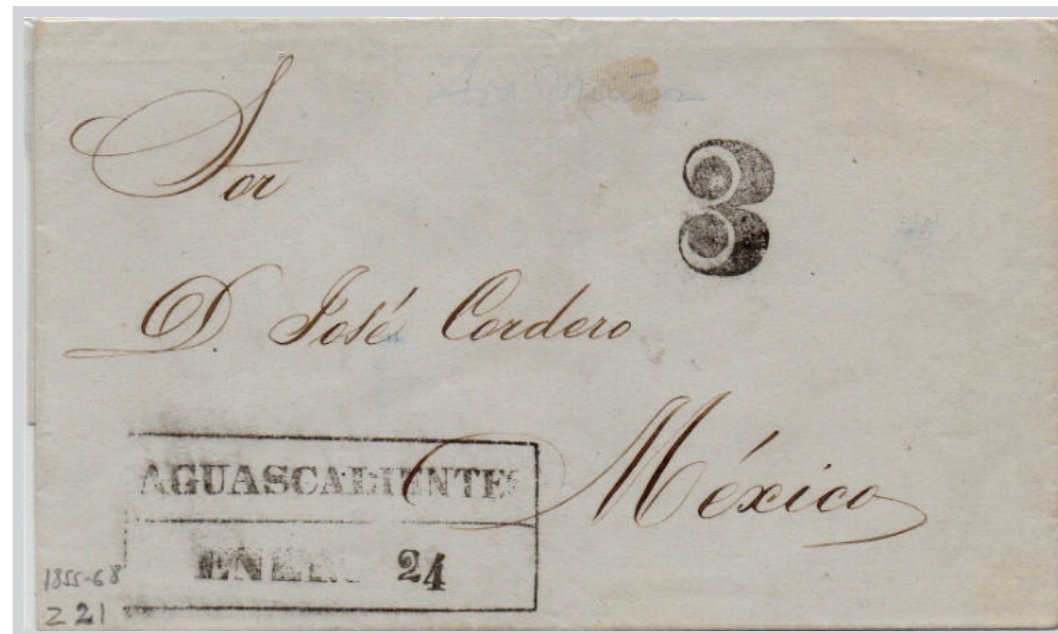 3
Sor
D. José Cordero
México
AGUASCALIENTES
ENERO 24
1855-68
Z 21